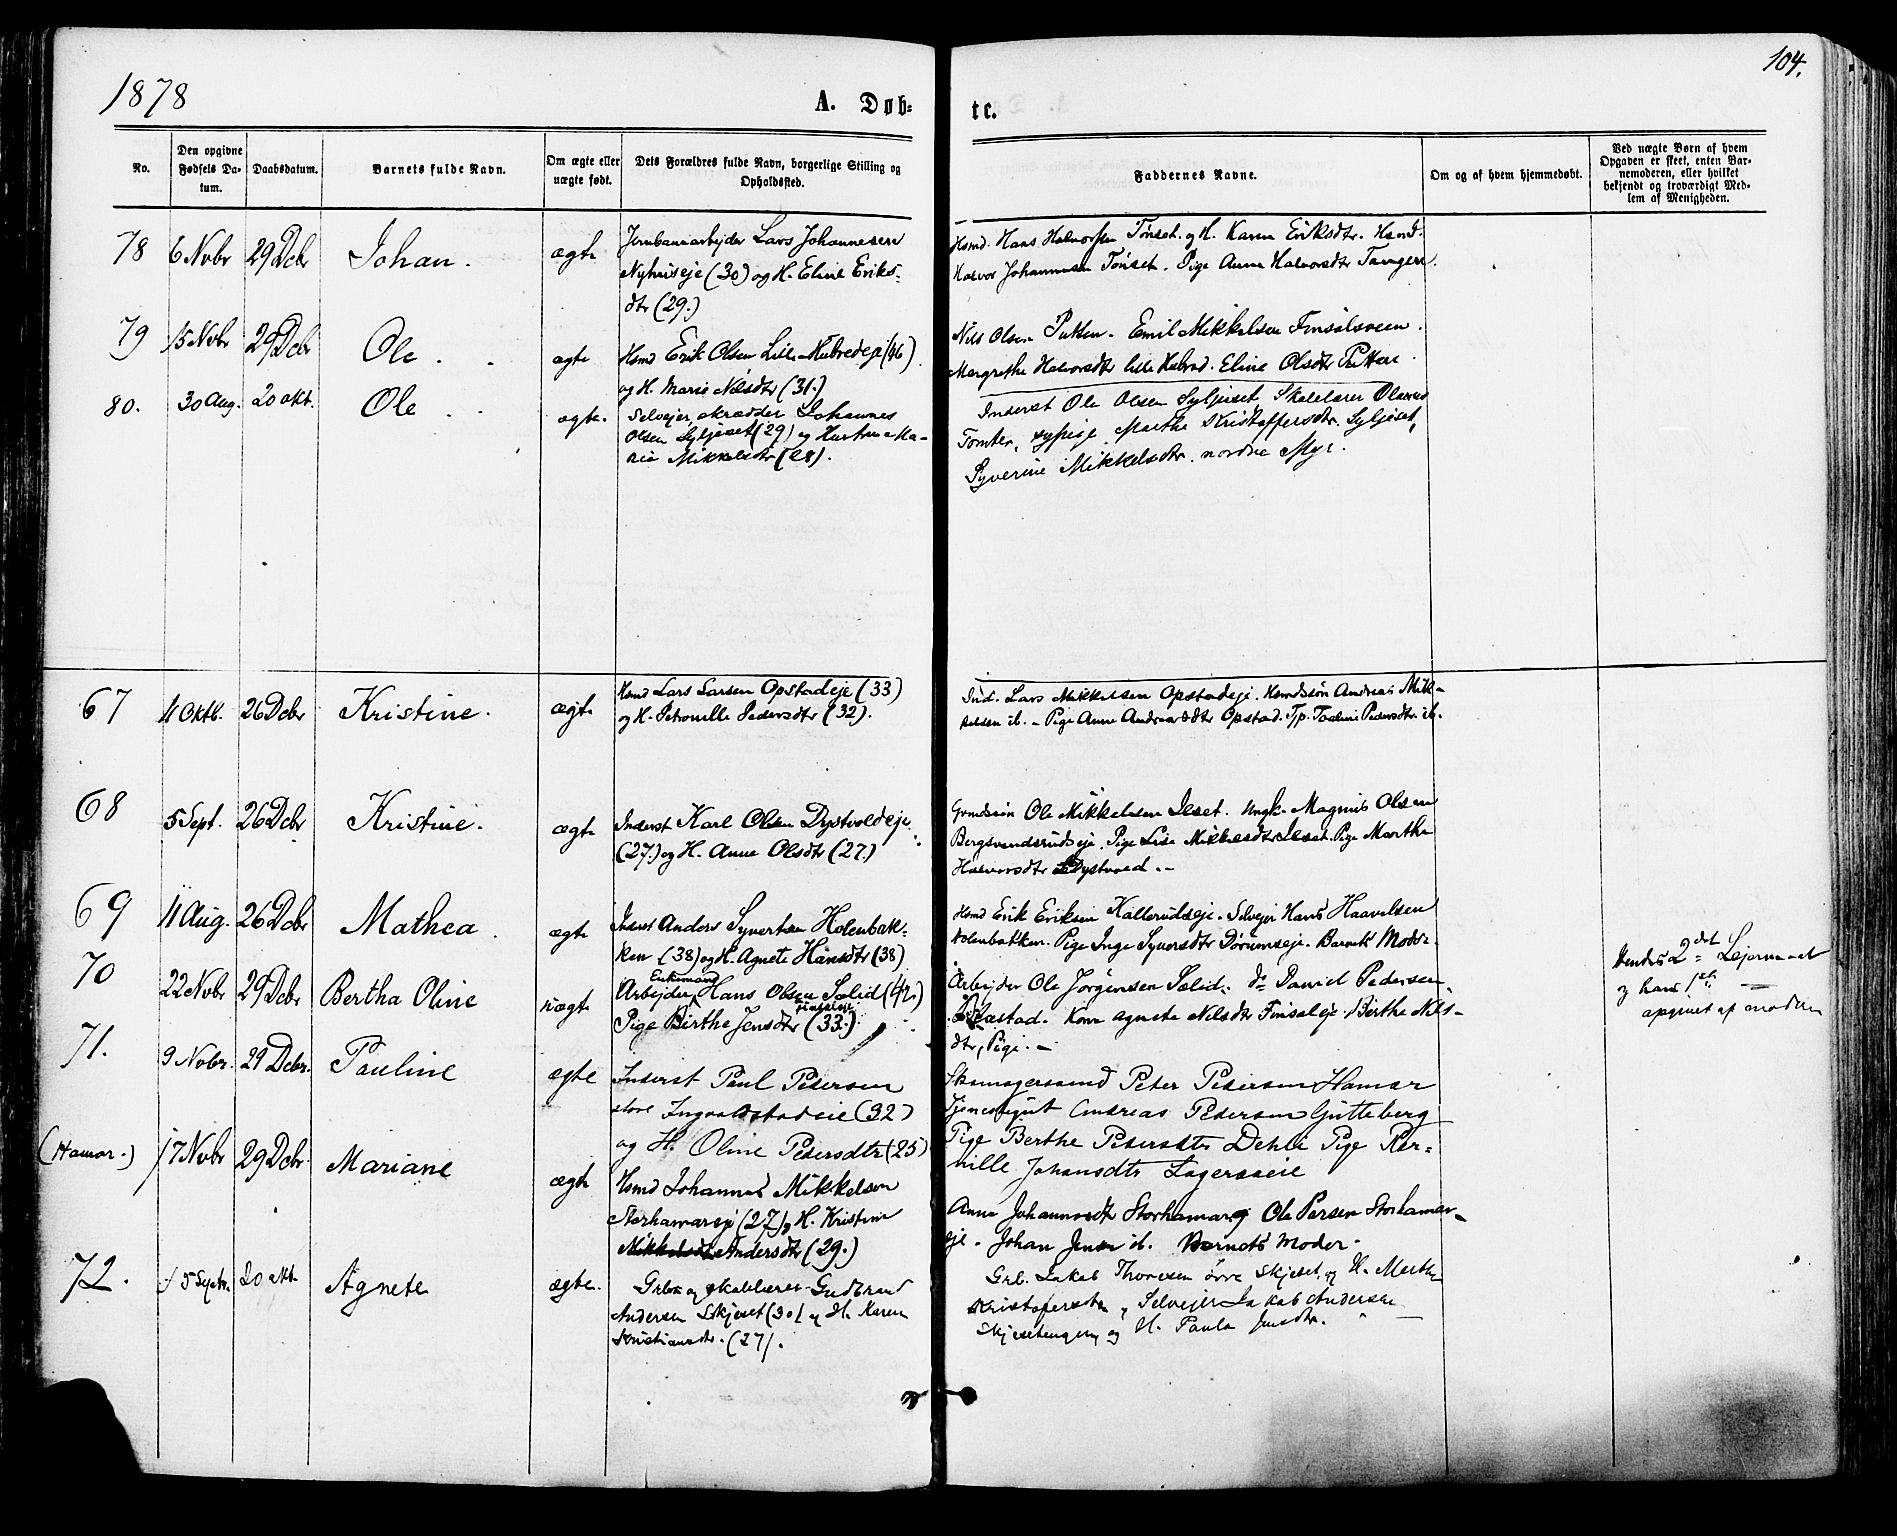 1878
104.
A. Døb-
te.
No.
Den opgivne Fødsels Da-tum.
Daabsdatum.
Barnets fulde Navn.
Om ægte eller uægte født.
Dets Forældres fulde Navn, borgerlige Stilling og Opholdssted.
Faddernes Navne.
Om og af hvem hjemmedøbt.
Ved uægte Børn af hvem Opgaven er skeet, enten Bar-nemoderen, eller hvilket bekjendt og troværdigt Med-lem af Menigheden.
78 6 Nvbr 29 Dcbr Johan. ægte
Jernbanearbejder Lars Johannesen
Nyhuseje (30) og H. Eline Eriks-
dtr (29.)
Hsmd. Hans Halvorsen Tønset. og H. Karen Eriksdtr. Hsmd.
Halvor Johannesen Tønset. Pige Anne Halvorsdtr Tangen.
79 15 Nvbr 29 Dcbr Ole. ægte
Hsmd Erik Olsen Lille-Hubredeje (46)
og H. Marie Nilsdtr (31.)
Nils Olsen Putten. Emil Mikkelsen Finsalsveen.
Margrethe Halvorsdtr lille Hubred. Eline Olsdtr Putten.
80. 30 Aug. 20 okt. Ole ægte.
Selvejer, skrædder Johannes
Olsen Syljeset (29) og Hustru Ma-
rie Mikkelsdtr (28).
Inderst Ole Olsen Syljeset, Skolelærer
Tomter, sypige Marthe Kristoffersdtr. Syljeset,
Syverine Mikkelsdtr. nordre Myr.
67 11 Oktb. 26 Dcbr Kristine. ægte
Hsmd Lars Larsen Opstadeje (33)
og H. Petronille Pedersdtr (32).
Ind. Lars Mikkelsen Opstadeje. Hsmdssøn Andreas Mik-
kelsen ib. - Pige Anne Andreasdtr Opstad. Tjp. Pedersdtr ib.
68 5 Sept. 26 Dcbr Kristine. ægte
Inderst Karl Olsen Dystvoldeje
(27.) og H. Anne Olsdtr (27.)
Grmdssøn Ole Mikkelsen Ilset. Ungk. Magnus Olsen
Bergsvendsrudseje. Pige Lise Mikkelsdtr Ilset. Pige Marthe
Halvorsdtr Dystvold. -
69 11 Aug. 26 Dcbr Mathea. ægte
Inderst Anders Syvertsen Holenbak-
ken (38) og H. Agnete Hansdtr (38)
Hsmd Erik Eriksen Kallerudseje. Selvejer Hans Haavelsen
Holenbakken. Pige Inge Syversdtr Dørumseje. Barnets Moder.
70 22 Nvbr 29 Dcbr Bertha Oline uægte
Enkemand
Arbejder Hans Olsen Sælid (42.)
Pige Birthe Jensdtr (33.)
Arbejder Ole Jørgensen Sælid. do David Pedersen
Kone Agnete Nilsdtr Finsaleje. Birthe Nils-
dtr, Pige. -
Hendes 2det Lejermaal
og hans 1ste
opgivet af moderen
71. 9 Nvbr. 29 Dcbr. Pauline ægte
Inderst Paul Pedersen
store Ingvoldstadeie (32)
og H. Oline Pedersdtr (25)
Skomagersvend Peter Pedersen Hamar
Tjenestgut Andreas Pedersen Gutteberg
Pige Berthe Pedersdtr Dehli Pige Per-
nille Johansdtr Lageraaeie
(Hamar.) 17 Nvbr 29 Dcbr. Mariane ægte
Hsmd Johannes Mikkelsen
Storhamareje (27) og H. Kristine
Mikkelsdtr Andersdtr (29.)
Anne Johannesdtr Storhamareje Ole Persen Storhamar-
eje. Johan Jensen ib. Barnets Moder.
72. 15 Septr. 20 okt. Agnete ægte.
Grbr. og skolelærer Gudbrand
Andersen Skjeset (30) og H. Karen
Kristiansdtr. (27).
Grb. Jakob Thoresen øvre Skjeset, og H. Marthe
Kristofersdtr, Selvejer Jakob Andersen
Skjesetengen, og H. Paula Jensdtr.